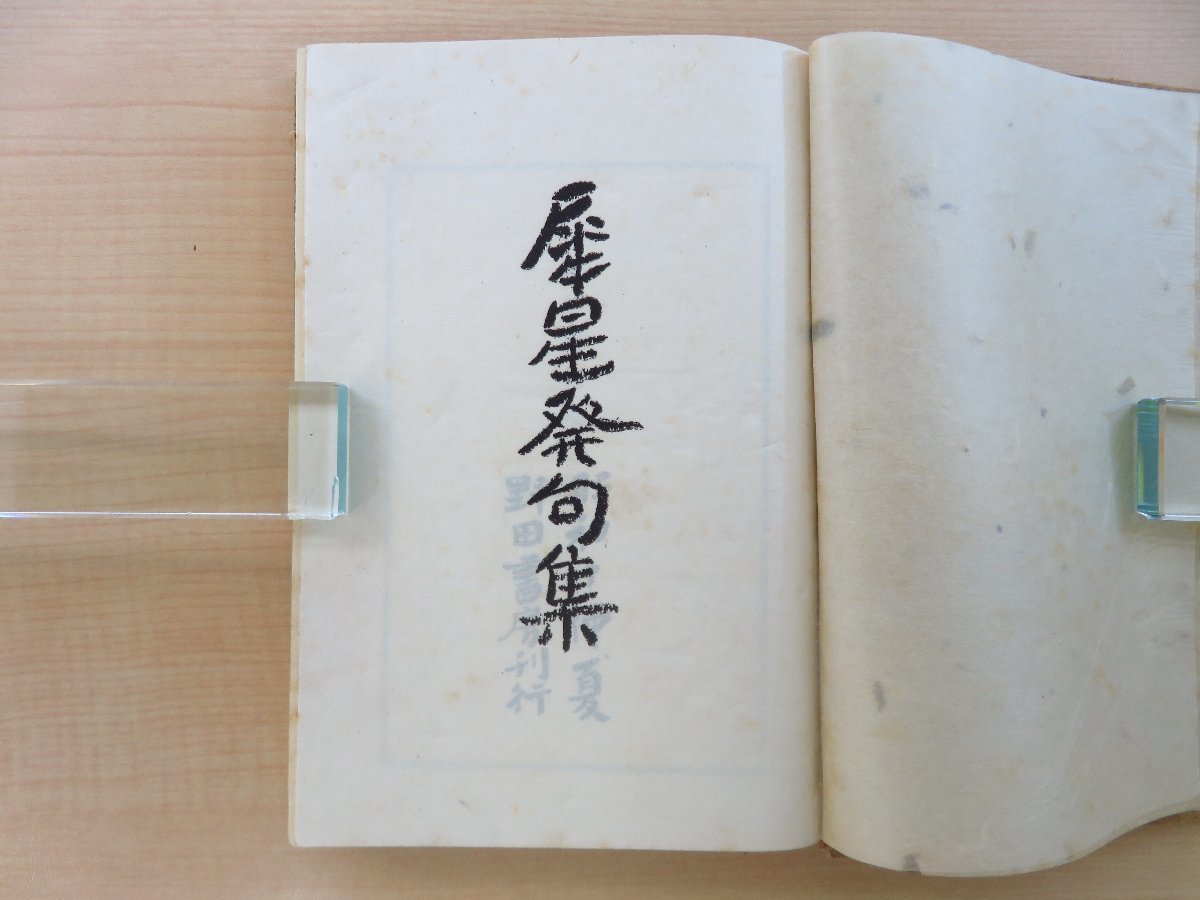 犀星発句集
夏
野田書房刊行